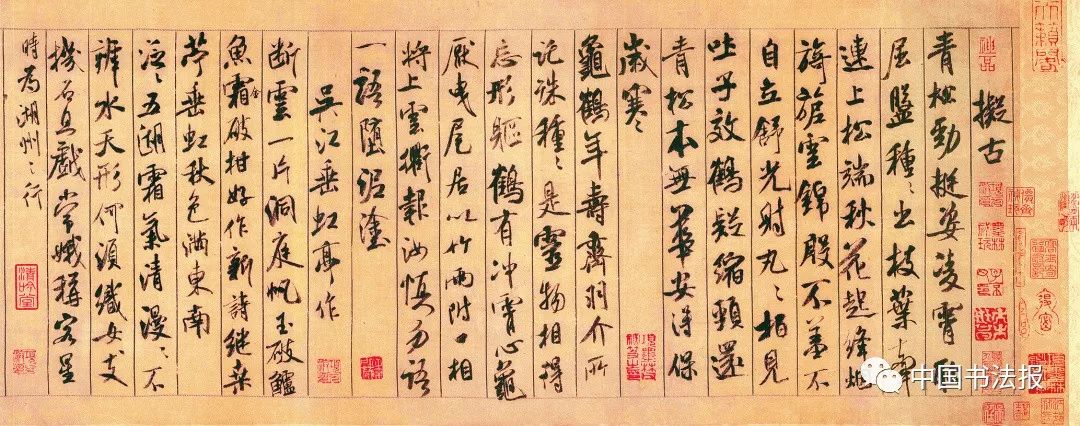 擬古
青松勁挺姿凌霄恥
屈盤種〻出枝葉牽
連上松端秋花起絳烟
旖旎雲錦殷不羞不
自立舒光射丸〻柏見
吐子效鶴疑縮頸還
青松本無華安得保
歲寒
龜鶴年壽齊羽介所
託殊種〻是靈物相得
忘形軀鶴有冲霄心龜
厭曳尾居以竹兩附口相
將上雲衢報汝慎勿語
一語墮泥塗
吳江垂虹亭作
断雲一片洞庭帆玉破鱸
魚霜金破柑好作新詩継桑
苧垂虹秋色滿東南
泛〻五湖霜氣清漫〻不
辨水天形何須織女支
機石且戲常娥稱客星
時為湖州之行
清吟堂
中国书法报